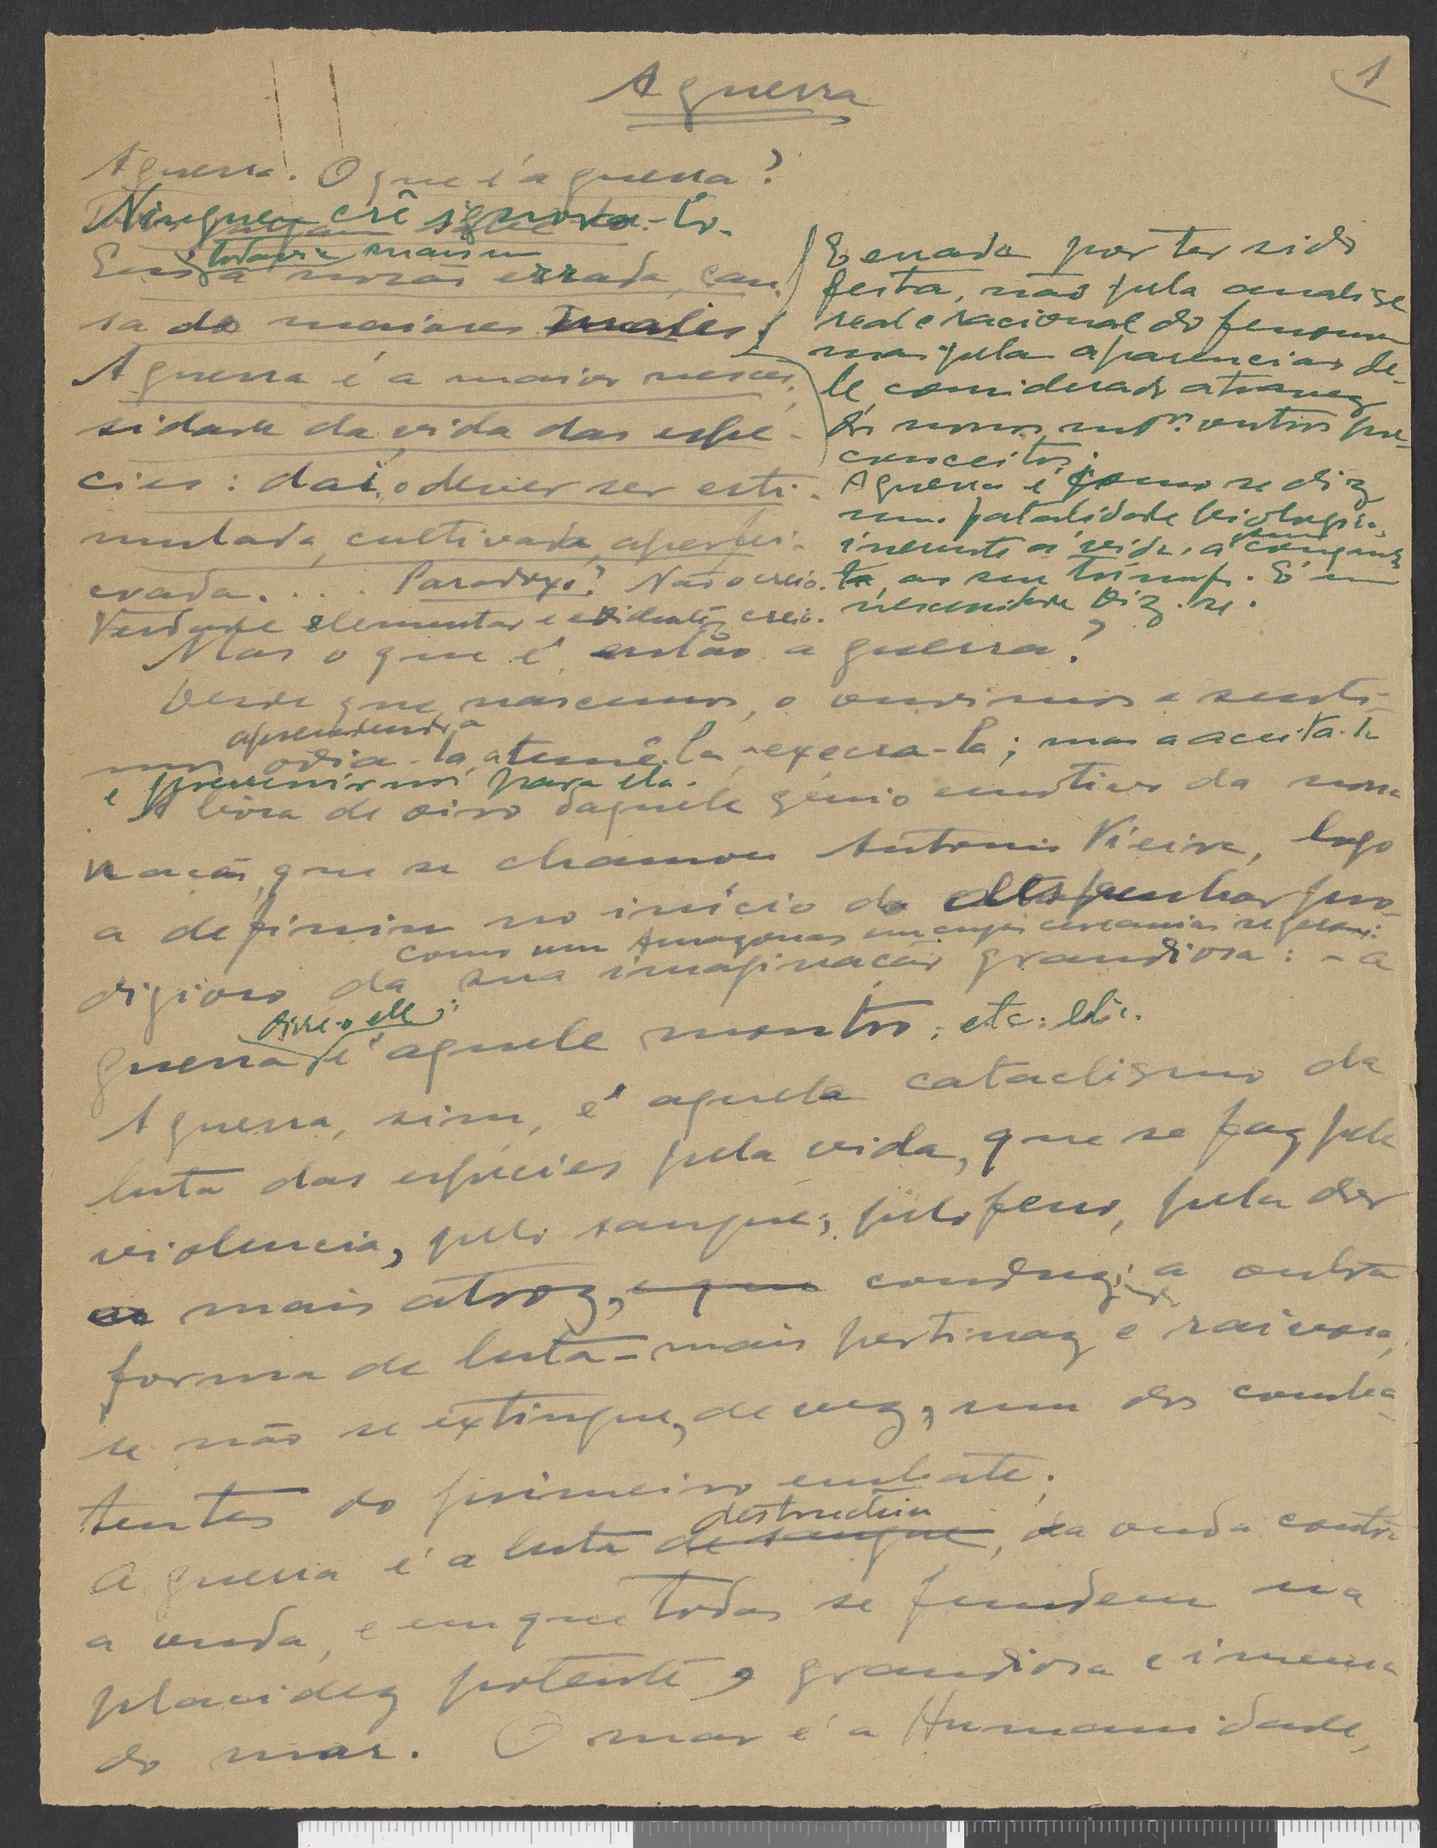 1
A guerra
A guerra. O que é a guerra?
Ninguem crê ignora-lo.
todavia mais
Essa noção errada, cau-
sa de maiores males.
A guerra é a maior neces-
sidade da vida das espe-
cies: daí o dever ser esti-
mulada, cultivada, aperfei-
çoada. . . . Paradoxo? Não o creio.
Verdade elementar e evidente, creio.
E errada por ter sido
feita, não pela analise
real e racional do fenomeno
mas pelas aparencias de-
le, considerado atravez
dos nossos outros pre-
conceitos.
A guerra é, como se diz
uma fatalidade biologica,
inerente á vida, á
ao seu triunfo. É uma
necessidade diz-se.
Mas o que é então a guerra?
Desde que nascemos, o ouvimos e senti-
aprendendo a
mos odia-la, a temê-la, execra-la; mas a aceita-la
e prevenir-nos para ela.
A bôca de oiro daquele génio emotivo da nossa
nação, que se chamou Antonio Vieira, logo
a definiu no inicio do despenhar pro-
como um Amazonas em cujas cercanias
digioso da sua imaginação grandiosa: - a
disse-o ele:
guerra é aquele monstro; etc: etc.
A guerra, sim, é aquele cataclismo da
luta das espécies pela vida, que se faz pela
violencia, pelo sangue, pelo ferro, pela dor
mais atroz, e que conduz a outra
forma de luta - mais pertinaz e raivosa,
se não se extingue, de vez, um dos comba-
tentes do primeiro embate.
destruidora
A guerra é a luta de sangue, da onda contra
a onda, e em que todas se fundem na
placidez potente, grandiosa e imensa
do mar. O mar é a Humanidade,